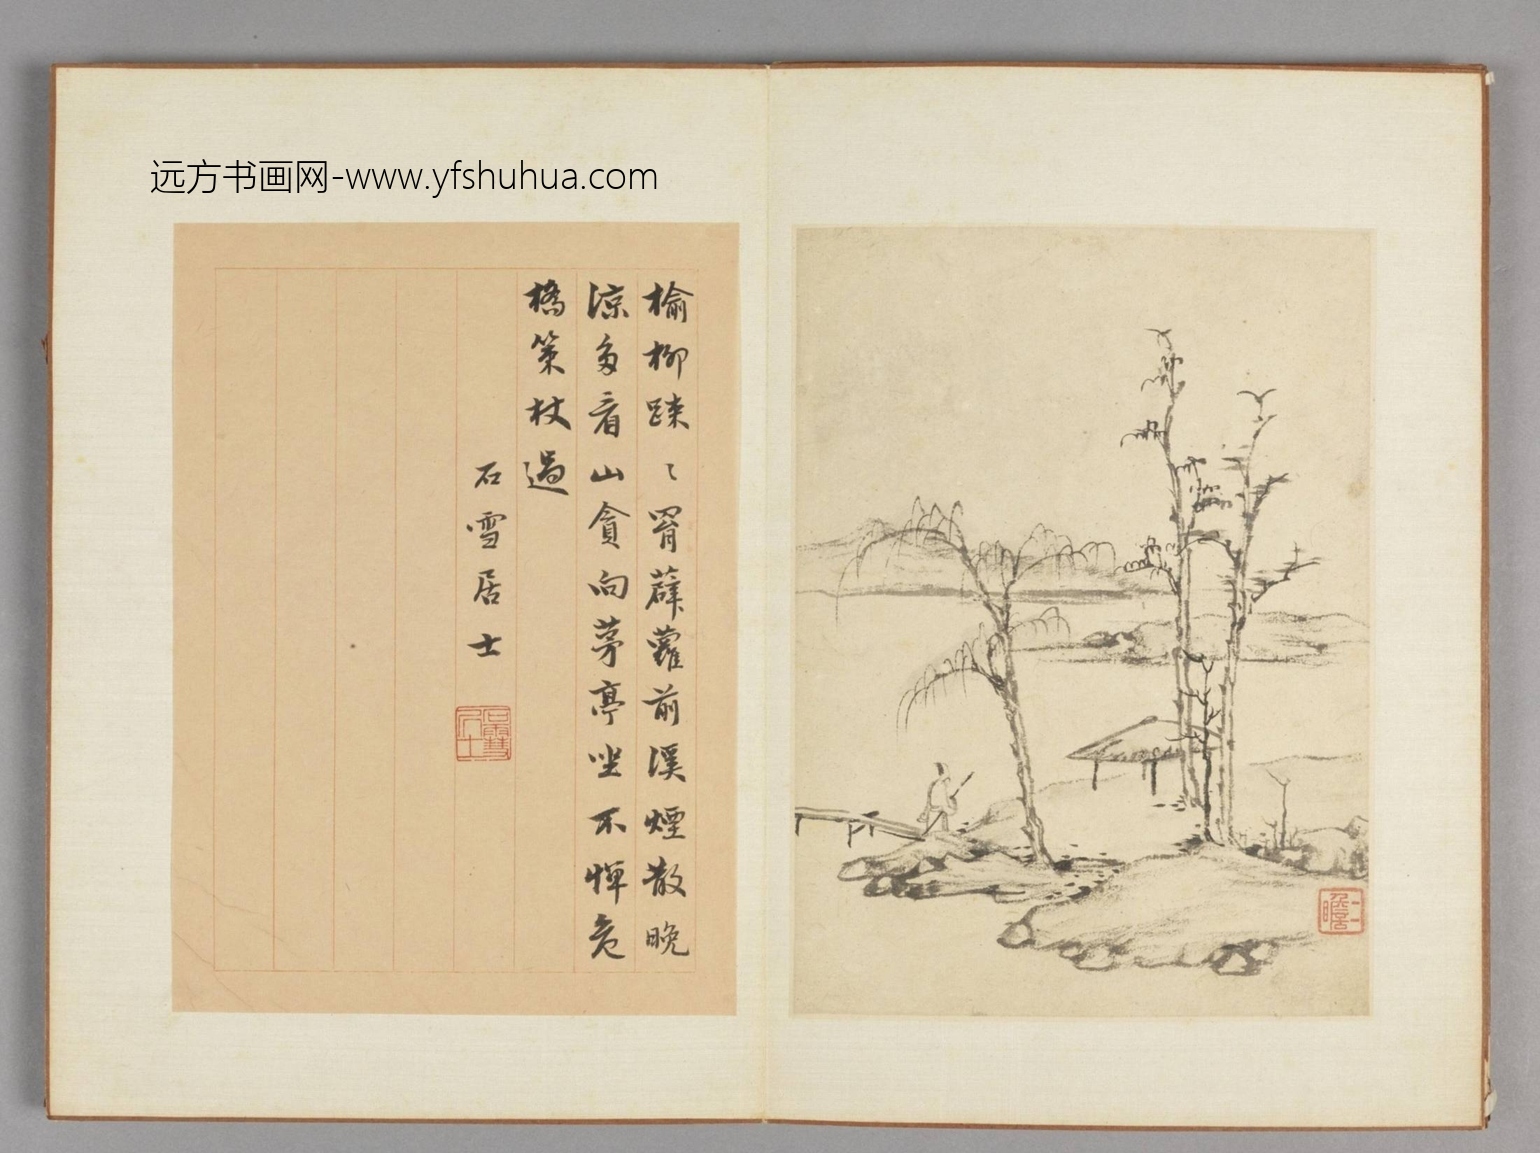 远方书画网-www.yfshuhua.com
榆柳踈〻罥薜蘿前溪煙散晚
涼多看山貪向茅亭坐不憚危
橋策杖過
石雪居士